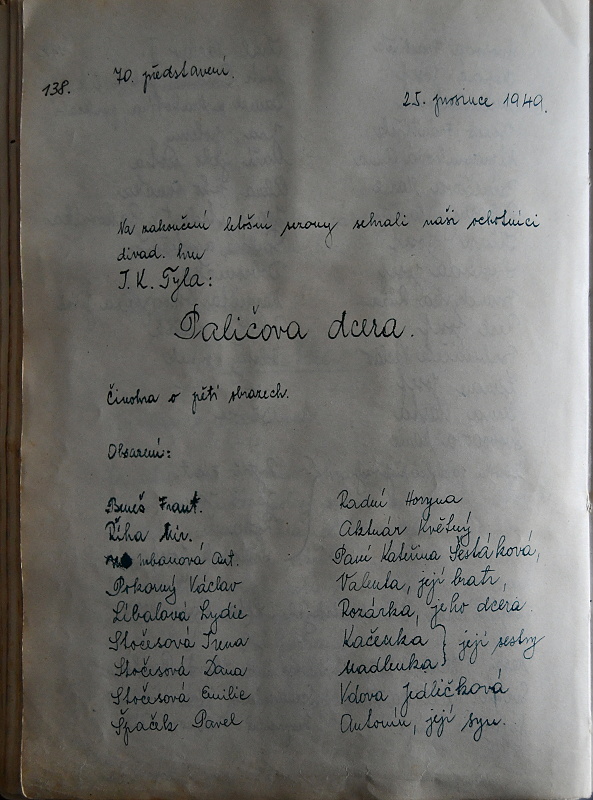 70. představení.
138.
25. prosince 1949.
Na zakončení letošní sezony sehráli naši ochotníci
divad. hru
J. K. Tyla:
Paličova dcera.
Činohra o pěti obrazech.
Obsazení:
Beneš Frant. Radní Hosyna
Říha Mir. Aktuár Květný
Ant. Paní Kateřina Šestáková,
Pokorný Václav Valenta, její bratr,
Líbalová Lydie Rozárka, jeho dcera.
Stočesová Irena Kačenka } její sestry
Stočesová Dana Madlenka
Stočesová Emilie Vdova Jedličková
Špaček Pavel Antonín, její syn.